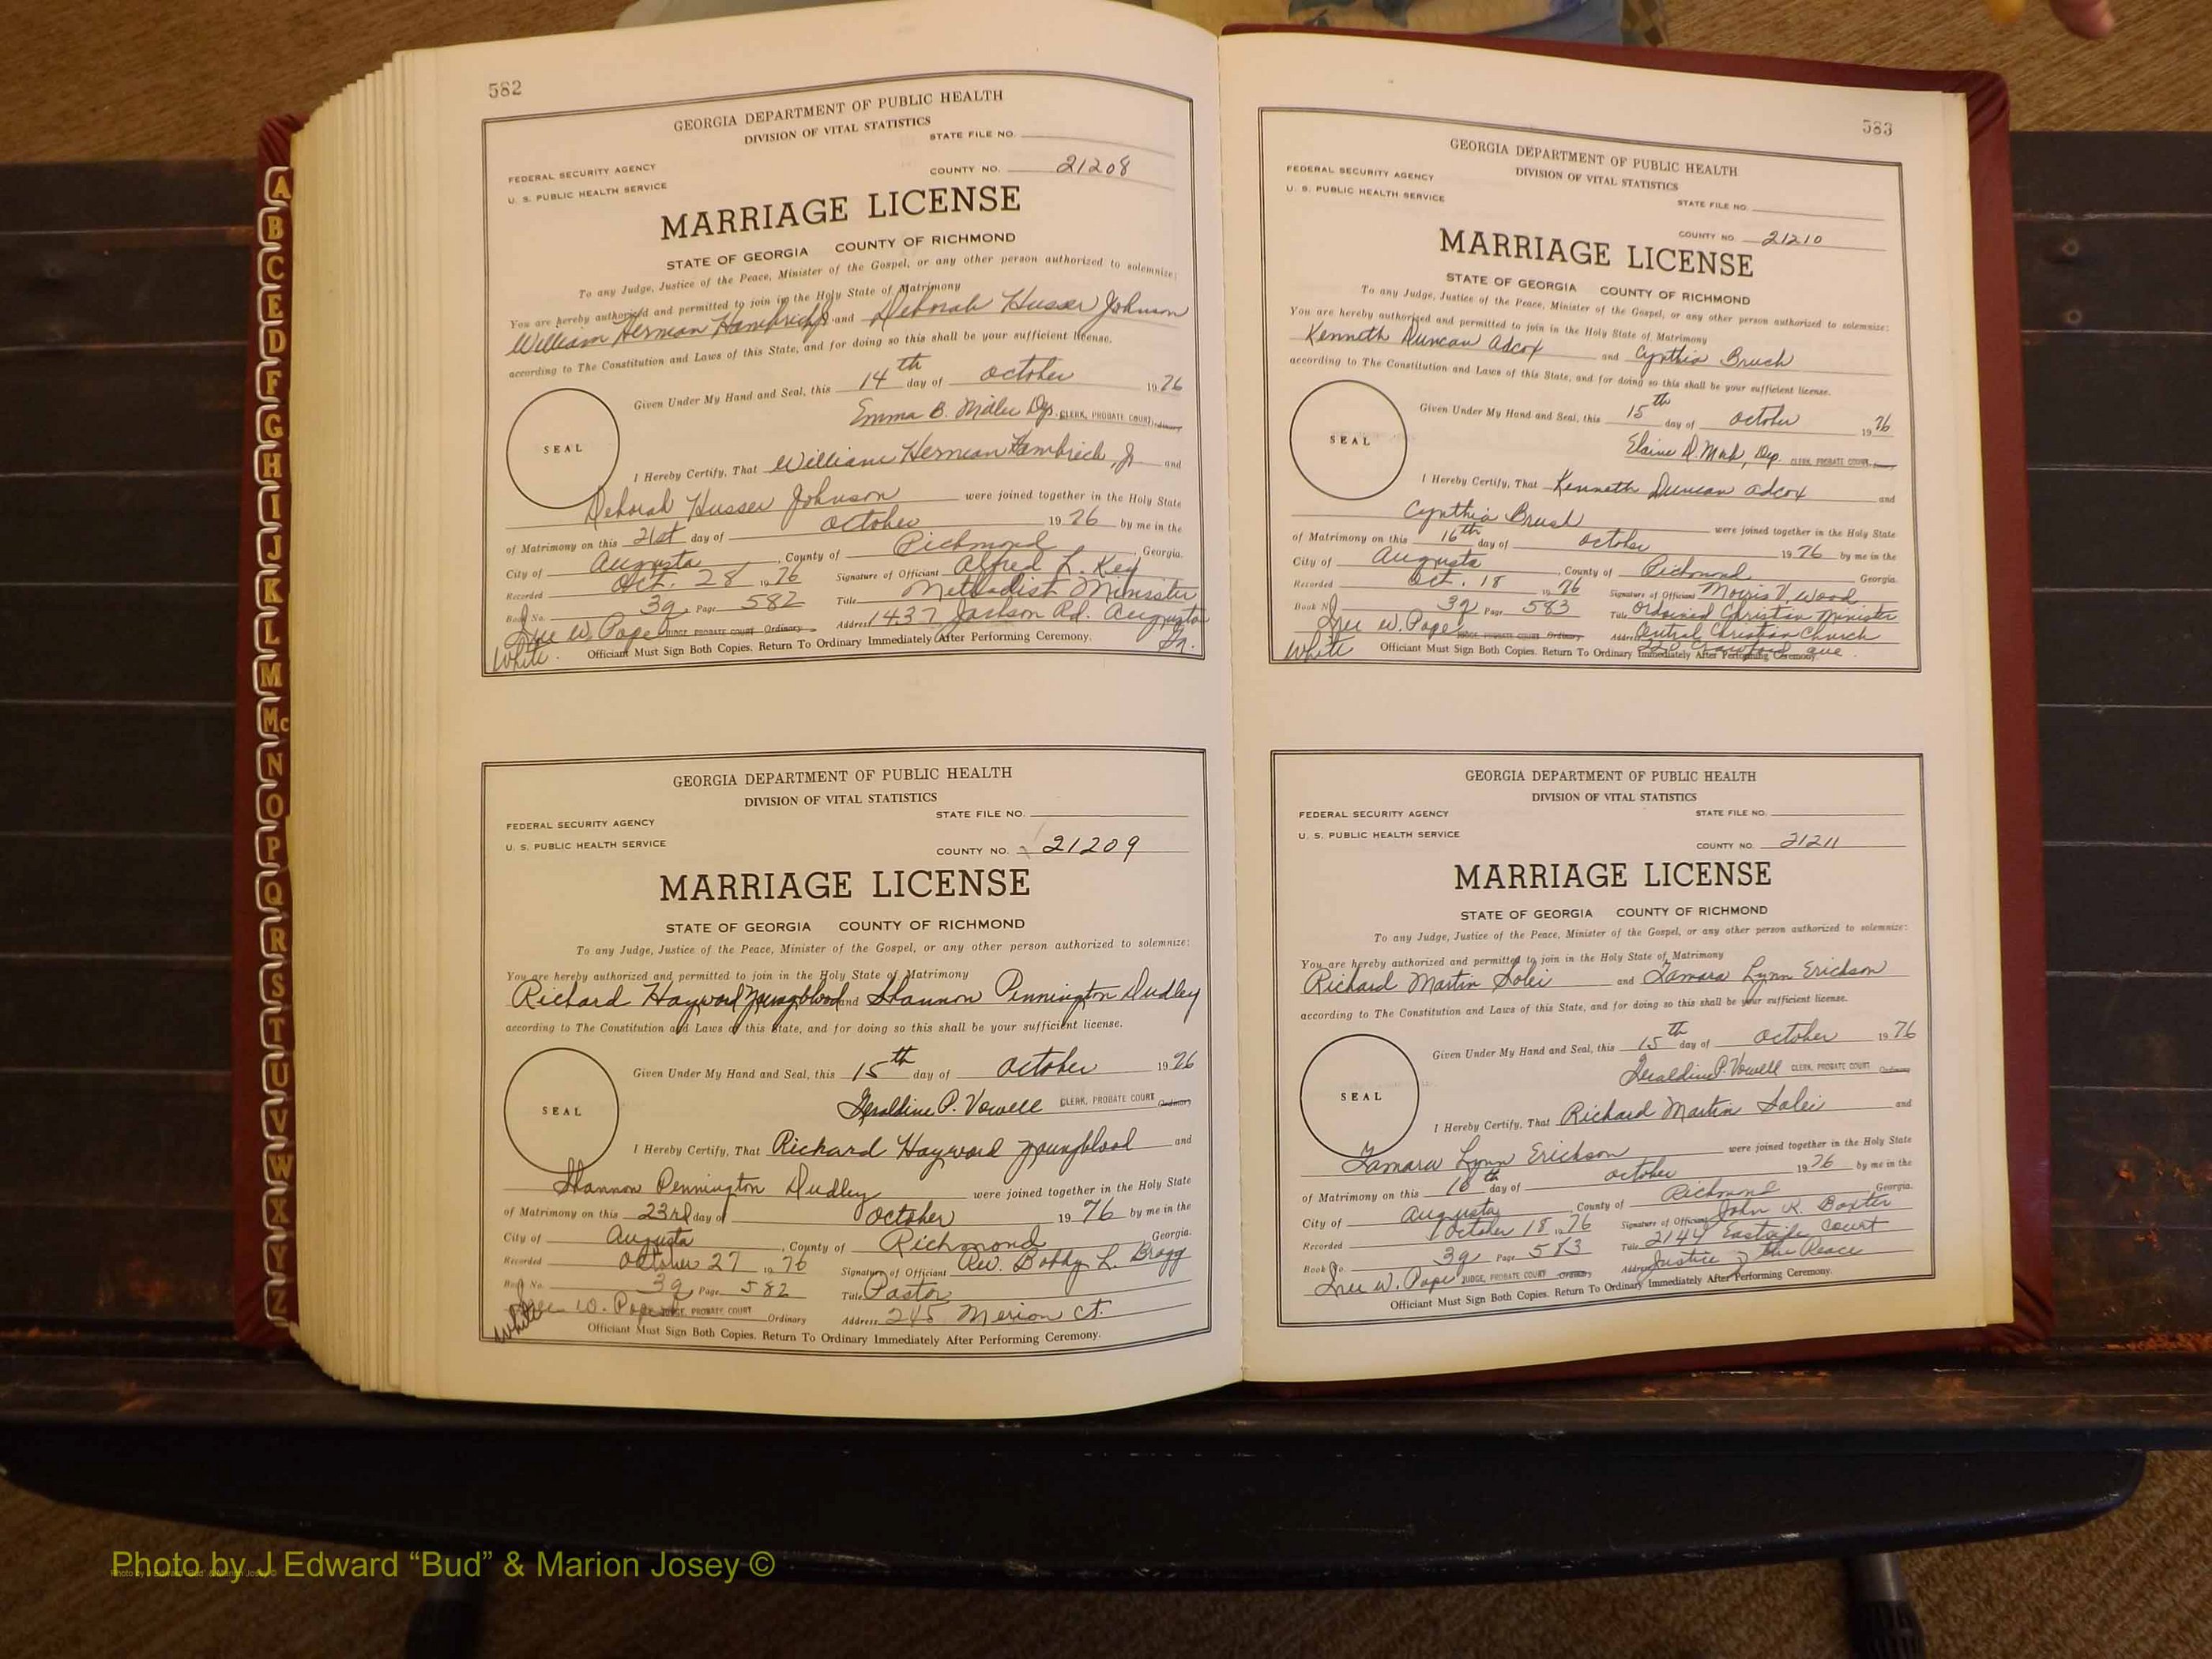 582
GEORGIA DEPARTMENT OF PUBLIC HEALTH
DIVISION OF VITAL STATISTICS
STATE FILE NO.
FEDERAL SECURITY AGENCY
U. S. PUBLIC HEALTH SERVICE
COUNTY NO. 21208
MARRIAGE LICENSE
STATE OF GEORGIA COUNTY OF RICHMOND
To any Judge, Justice of the Peace, Minister of the Gospel, or any other person authorized to solemnize:
You are hereby authorized and permitted to join in the Holy State of Matrimony
William Herman Hambrick Jr and Deborah Husser Johnson
according to The Constitution and Laws of this State, and for doing so this shall be your sufficient license.
Given Under My Hand and Seal, this 14th day of October 1976
Emma B. Dep. CLERK, PROBATE COURT Ordinary
SEAL
I Hereby Certify, That William Herman Hambrick, Jr and
Deborah Husser Johnson were joined together in the Holy State
of Matrimony on this 21st day of October 1976 by me in the
City of Augusta, County of Richmond, Georgia.
Recorded Oct. 28 1976 Signature of Officiant Alfred L. Key
Book No. 39 Page 582 Title Methodist Minister
W. Pope JUDGE, PROBATE COURT Ordinary Address 1437 Jackson Rd. Augusta Ga.
White Officiant Must Sign Both Copies. Return To Ordinary Immediately After Performing Ceremony.
GEORGIA DEPARTMENT OF PUBLIC HEALTH
DIVISION OF VITAL STATISTICS
STATE FILE NO.
FEDERAL SECURITY AGENCY
U. S. PUBLIC HEALTH SERVICE
COUNTY NO. 21209
MARRIAGE LICENSE
STATE OF GEORGIA COUNTY OF RICHMOND
To any Judge, Justice of the Peace, Minister of the Gospel, or any other person authorized to solemnize:
You are hereby authorized and permitted to join in the Holy State of Matrimony
Richard Hayward Youngblood and Shannon Pennington Dudley
according to The Constitution and Laws of this State, and for doing so this shall be your sufficient license.
Given Under My Hand and Seal, this 15th day of October 1976
Geraldine P. Vowell CLERK, PROBATE COURT Ordinary
SEAL
I Hereby Certify, That Richard Hayward Youngblood and
Shannon Pennington Dudley were joined together in the Holy State
of Matrimony on this 23rd day of October 1976 by me in the
City of Augusta, County of Richmond, Georgia.
Recorded October 27 1976 Signature of Officiant Rev. Bobby L. Bragg
Book No. 39 Page 582 Title Pastor
W. Pope JUDGE, PROBATE COURT Ordinary Address 245 Merion Ct.
White Officiant Must Sign Both Copies. Return To Ordinary Immediately After Performing Ceremony.
583
GEORGIA DEPARTMENT OF PUBLIC HEALTH
DIVISION OF VITAL STATISTICS
FEDERAL SECURITY AGENCY
U. S. PUBLIC HEALTH SERVICE
STATE FILE NO.
COUNTY NO. 21210
MARRIAGE LICENSE
STATE OF GEORGIA COUNTY OF RICHMOND
To any Judge, Justice of the Peace, Minister of the Gospel, or any other person authorized to solemnize:
You are hereby authorized and permitted to join in the Holy State of Matrimony
Kenneth Duncan Adcox and Cynthia Brush
according to The Constitution and Laws of this State, and for doing so this shall be your sufficient license.
Given Under My Hand and Seal, this 15th day of October 1976
Elaine D. Dep. CLERK, PROBATE COURT Ordinary
SEAL
I Hereby Certify, That Kenneth Duncan Adcox and
Cynthia Brush were joined together in the Holy State
of Matrimony on this 16th day of October 1976 by me in the
City of Augusta, County of Richmond, Georgia.
Recorded Oct. 18 1976 Signature of Officiant Morris V. Wood
Book No. 39 Page 583 Title Ordained Christian Minister
W. Pope JUDGE, PROBATE COURT Ordinary Address Central Christian Church
White Officiant Must Sign Both Copies. Return To Ordinary Immediately After Performing Ceremony.
220 Crawford ave.
GEORGIA DEPARTMENT OF PUBLIC HEALTH
DIVISION OF VITAL STATISTICS
FEDERAL SECURITY AGENCY
STATE FILE NO.
U. S. PUBLIC HEALTH SERVICE
COUNTY NO. 21211
MARRIAGE LICENSE
STATE OF GEORGIA COUNTY OF RICHMOND
To any Judge, Justice of the Peace, Minister of the Gospel, or any other person authorized to solemnize:
You are hereby authorized and permitted to join in the Holy State of Matrimony
Richard Martin Solei and Tamara Lynn Erickson
according to The Constitution and Laws of this State, and for doing so this shall be your sufficient license.
Given Under My Hand and Seal, this 15th day of October 1976
Geraldine P. Vowell CLERK, PROBATE COURT Ordinary
SEAL
I Hereby Certify, That Richard Martin Solei and
Tamara Lynn Erickson were joined together in the Holy State
of Matrimony on this 18th day of October 1976 by me in the
City of Augusta, County of Richmond, Georgia.
Recorded October 18 1976 Signature of Officiant John K. Baxter
Book No. 39 Page 583 Title 2144 Eastside Court
W. Pope JUDGE, PROBATE COURT Ordinary Address Justice of the Peace
Officiant Must Sign Both Copies. Return To Ordinary Immediately After Performing Ceremony.
A
B
C
E
D
F
G
H
I
J
K
L
M
Mc
N
O
P
Q
R
S
T
U
V
W
X
Y
Z
Photo by J Edward “Bud” & Marion Josey ©
Photo by J Edward "Bud" & Marion Josey ©